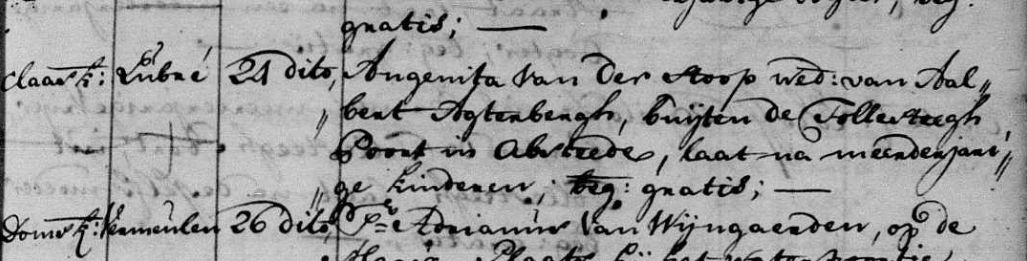 gratis; —
Claas k: Lubré 21 dito, Angenita van der Stoop wed: van Aal„
„bert Agtenbergh, buijten de Tollesteegh„
Poort in Abstrede, laat na meerderjari„
„ge kinderen, beg: gratis; —
Doms k: Vermeulen 26 dito, Adrianus van Wijngaerden, op de
Plaats bij het